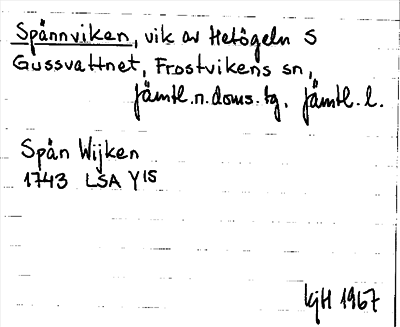 Spånnviken, vik av Hetögeln S
Gussvattnet, Frostvikens sn,
Jämtl. n. doms. tg. Jämtl. l.
Spån Wijken
1743 LSA Y15
kjH 1967